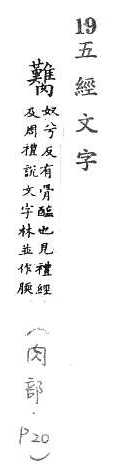 19五經文字
臡
奴兮反有骨醢也見禮經
及周禮說文字林並作腝
（肉部．P20）